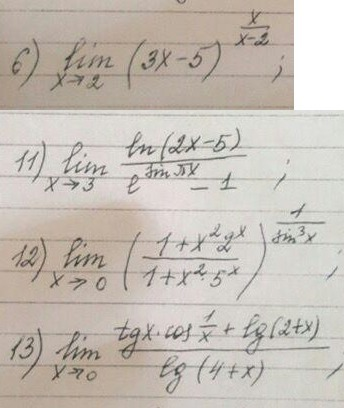 6) lim x→2 (3x-5)^(x/(x-2)) ;
11) lim x→3 ln(2x-5) / (e^(sin πx) - 1) ;
12) lim x→0 ((1+x²2^x) / (1+x²·5^x))^(1/sin³x) ;
13) lim x→0 (tgx·cos 1/x + lg(2+x)) / lg(4+x) ;